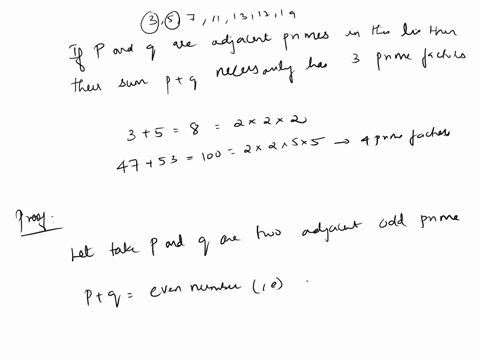 3, 5, 7, 11, 13, 17, 19
If P and q are adjacent primes in this list then
their sum p+q necessarily has 3 prime factors
3 + 5 = 8 = 2 × 2 × 2
47 + 53 = 100 = 2 × 2 × 5 × 5 → 4 prime factors
Proof:
Let take p and q are two adjacent odd prime
P + q = even number (i.e)